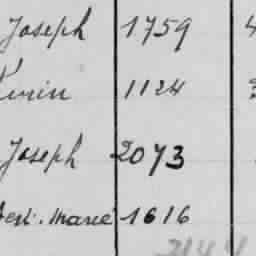 Joseph 1759 4
1124
Joseph 2073
Marie 1616